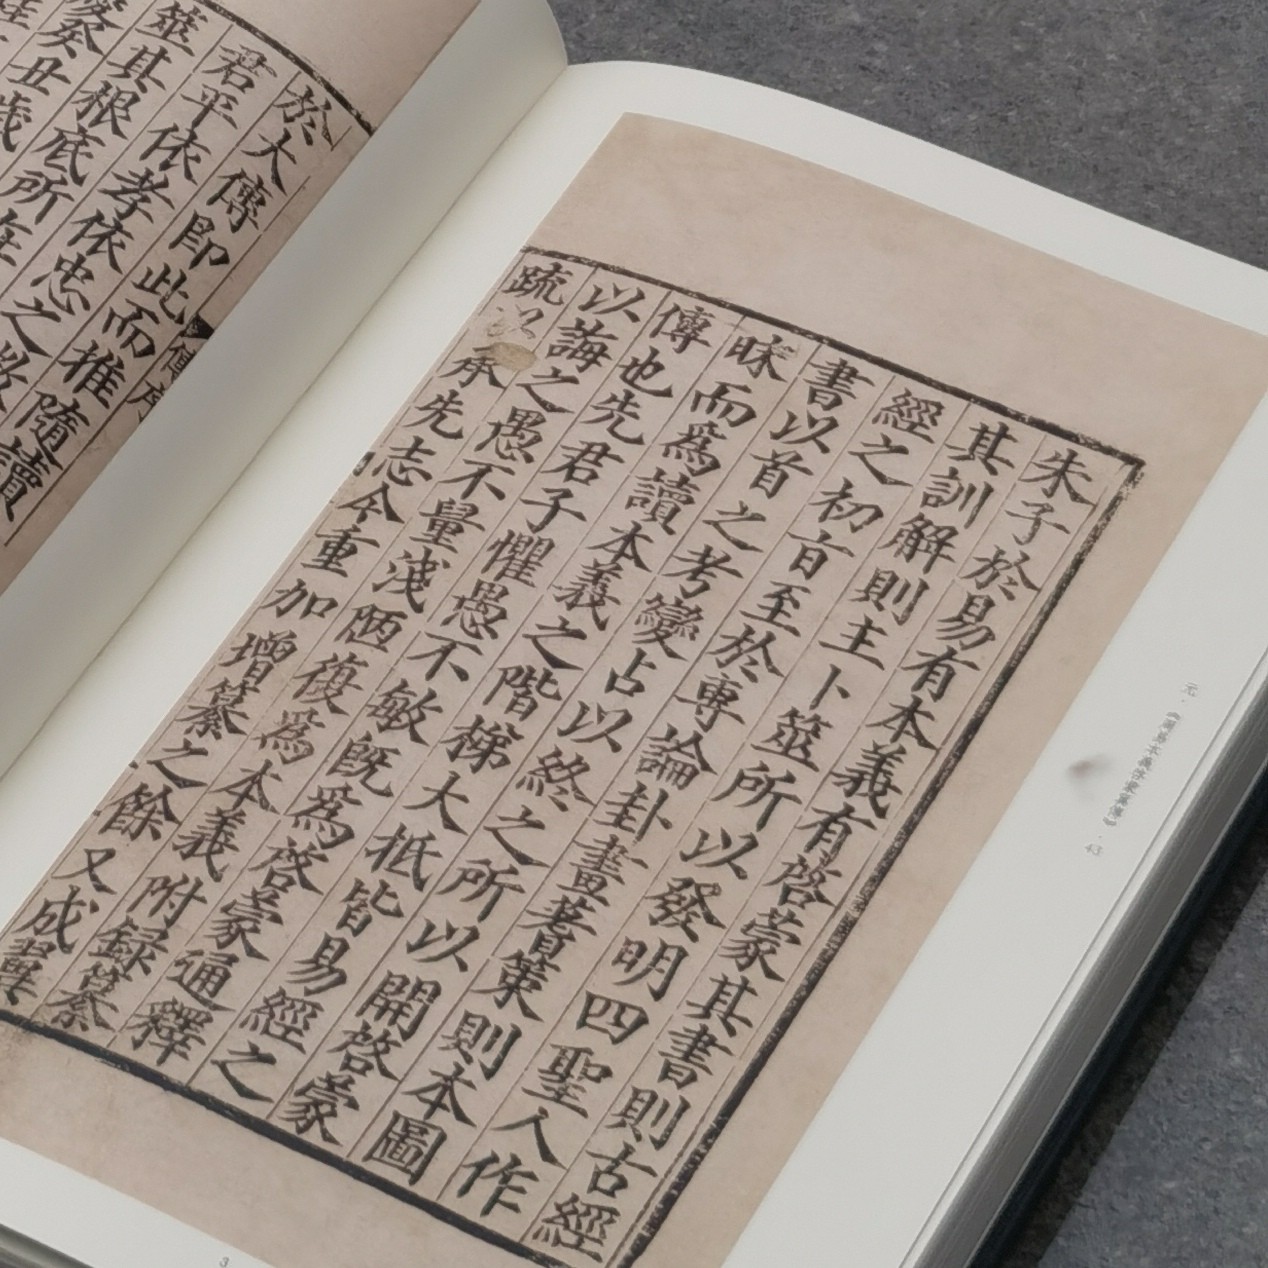 朱子於易有本義有啓蒙其書則古經
其訓解則主卜筮所以發明四聖人作
經之初旨至於專論卦畫蓍策則本圖
書以首之考變占以終之所以開啓蒙
昧而爲讀本義之階梯大抵皆易經之
傳也先君子懼愚不敏旣爲啓蒙通釋
以誨之愚不量淺陋復爲本義附録纂
疏以承先志今重加增纂之餘又成翼
元·《周易本義啓蒙翼傳》·43
於大傳即此而推隨讀
君平依孝依忠之
筮其根底所在
癸丑歲